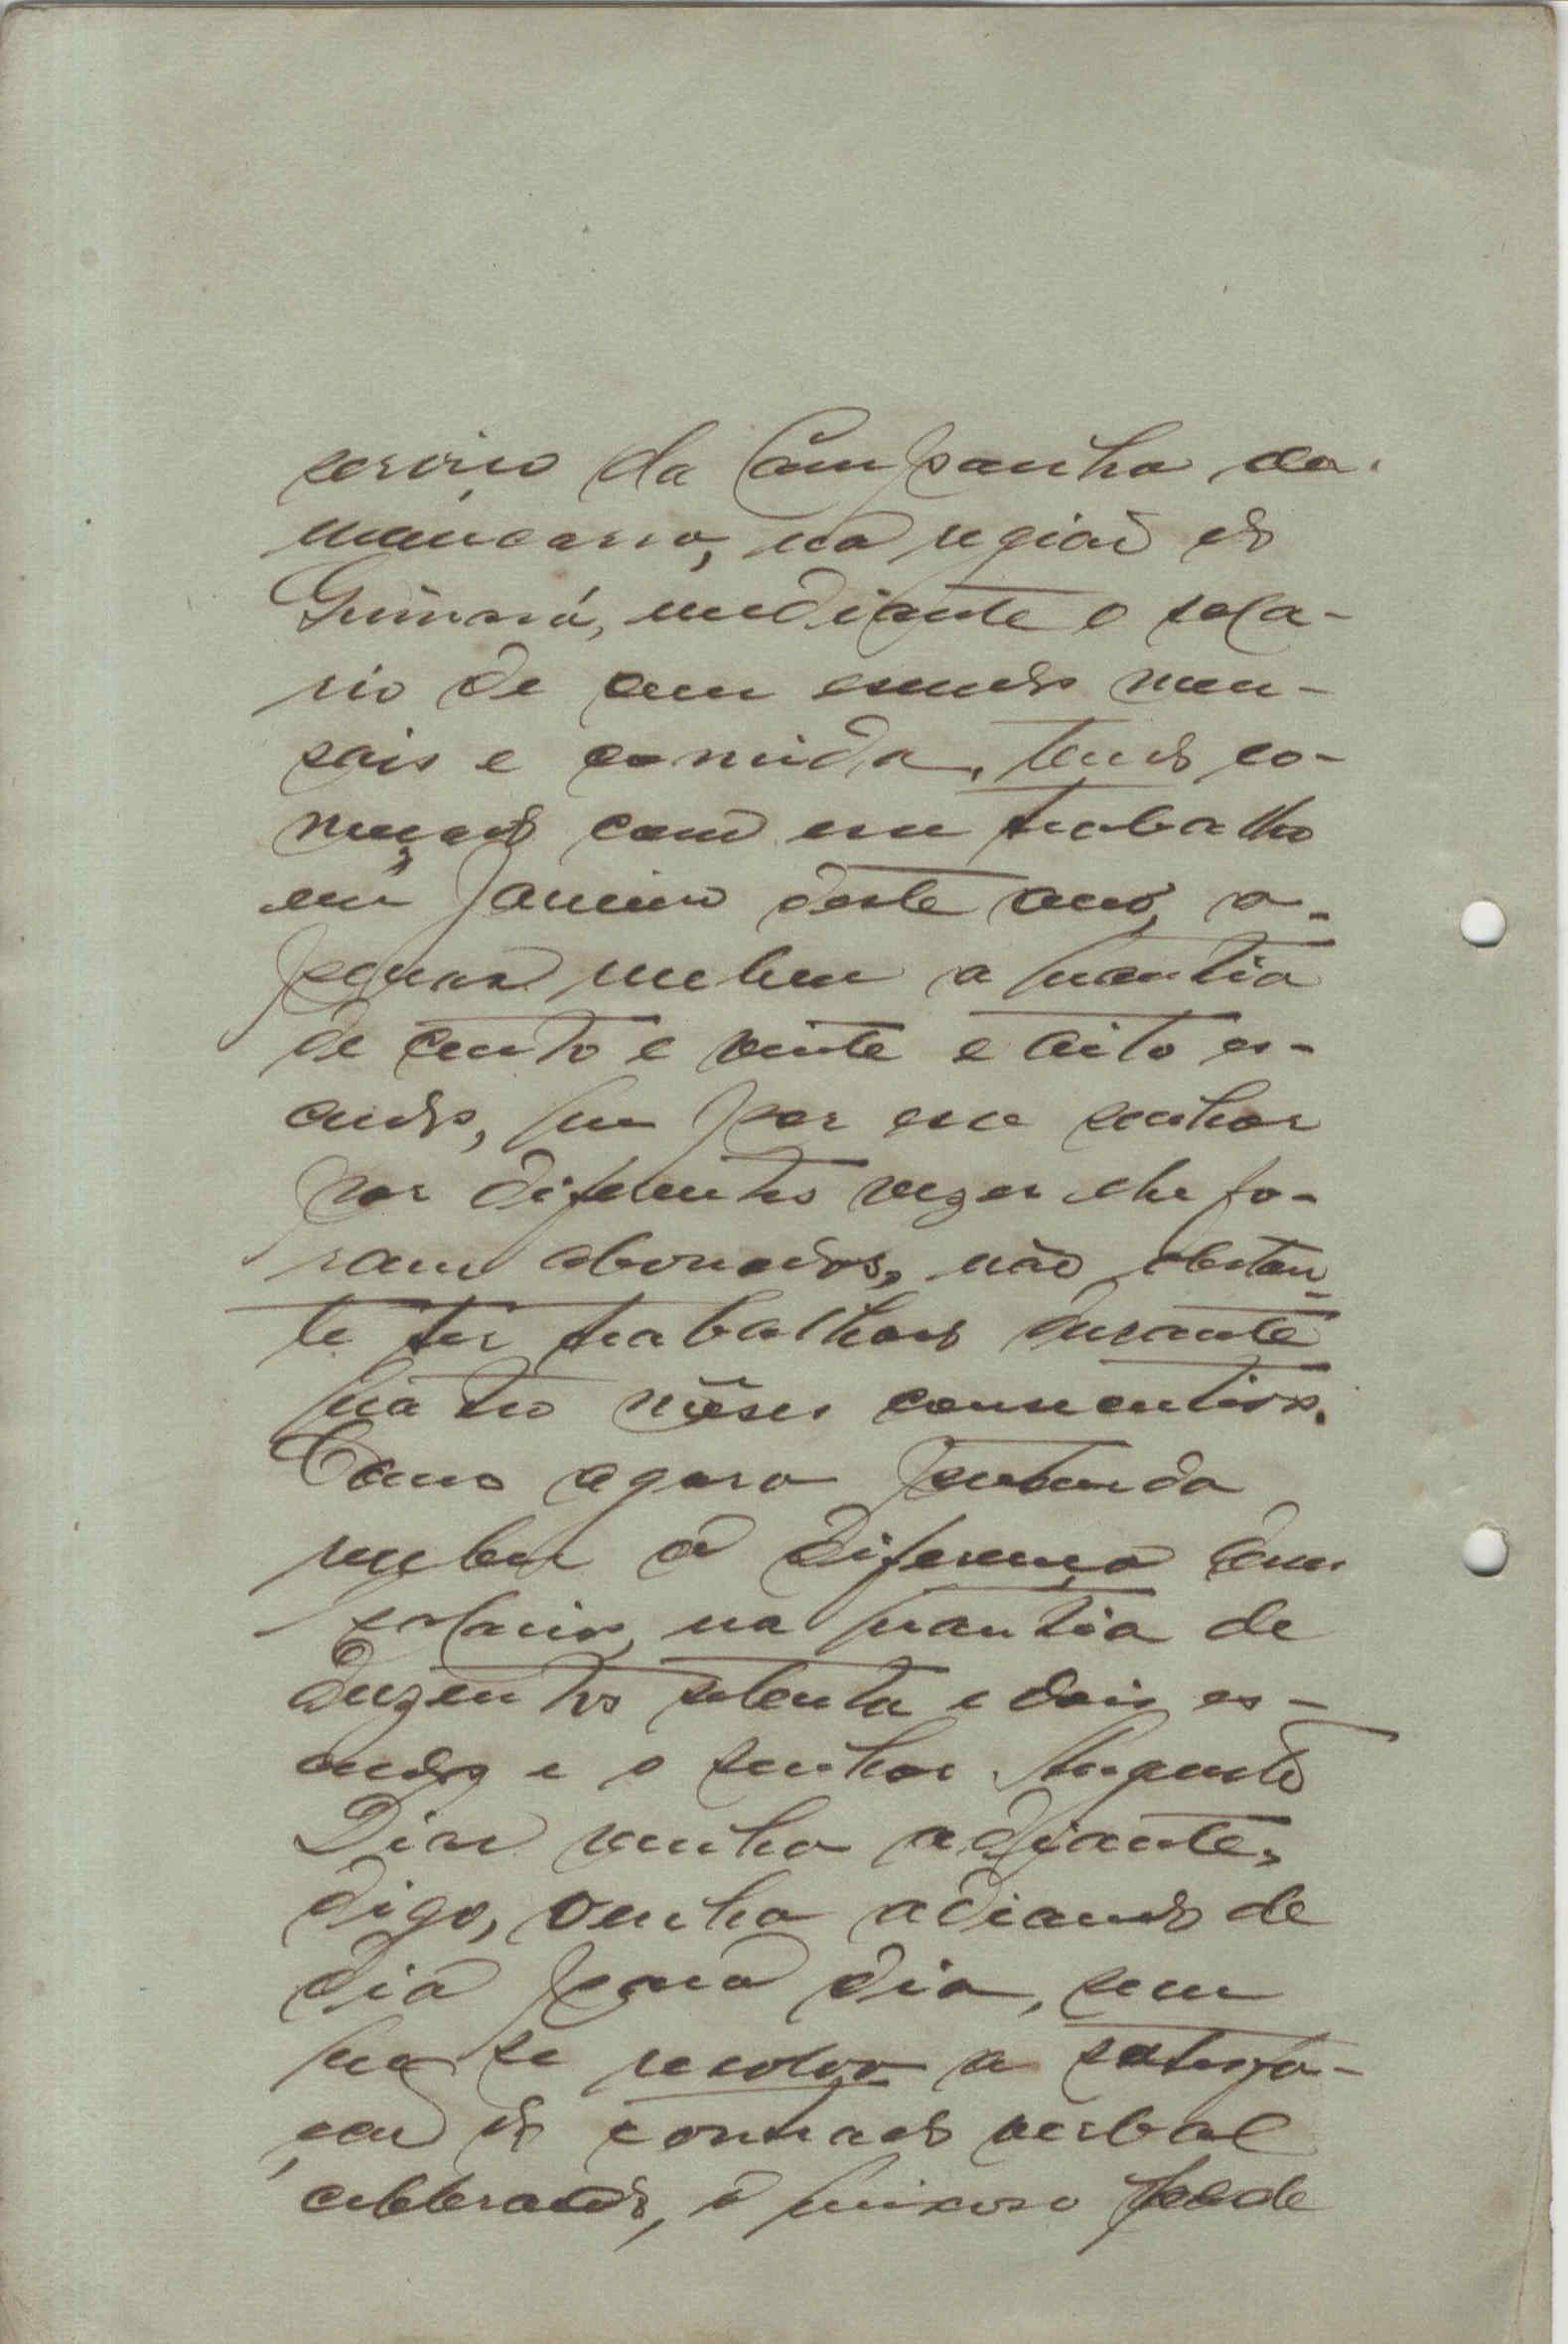 serviço da Campanha da
mancarra, na região do
Guimará, mediante o sala-
rio de cem escudos men-
sais e comida, tendo co-
meçado com esse trabalho
em Janeiro deste ano, a-
penas recebeu a quantia
de cento e vinte e oito es-
cudos, que por esse senhor
por diferentes vezes lhe fo-
ram abonados, não obstan-
te ter trabalhado durante
quatro mêses consecutivos.
Como agora pretenda
receber a diferença dos seus
salarios, na quantia de
duzentos setenta e dois es-
cudos e o senhor Augusto
Dias venha adiante,
digo, venha adiando de
dia para dia, sem
que se resolva a satisfa-
ção do contrado verbal
celebrado, o queixoso pede